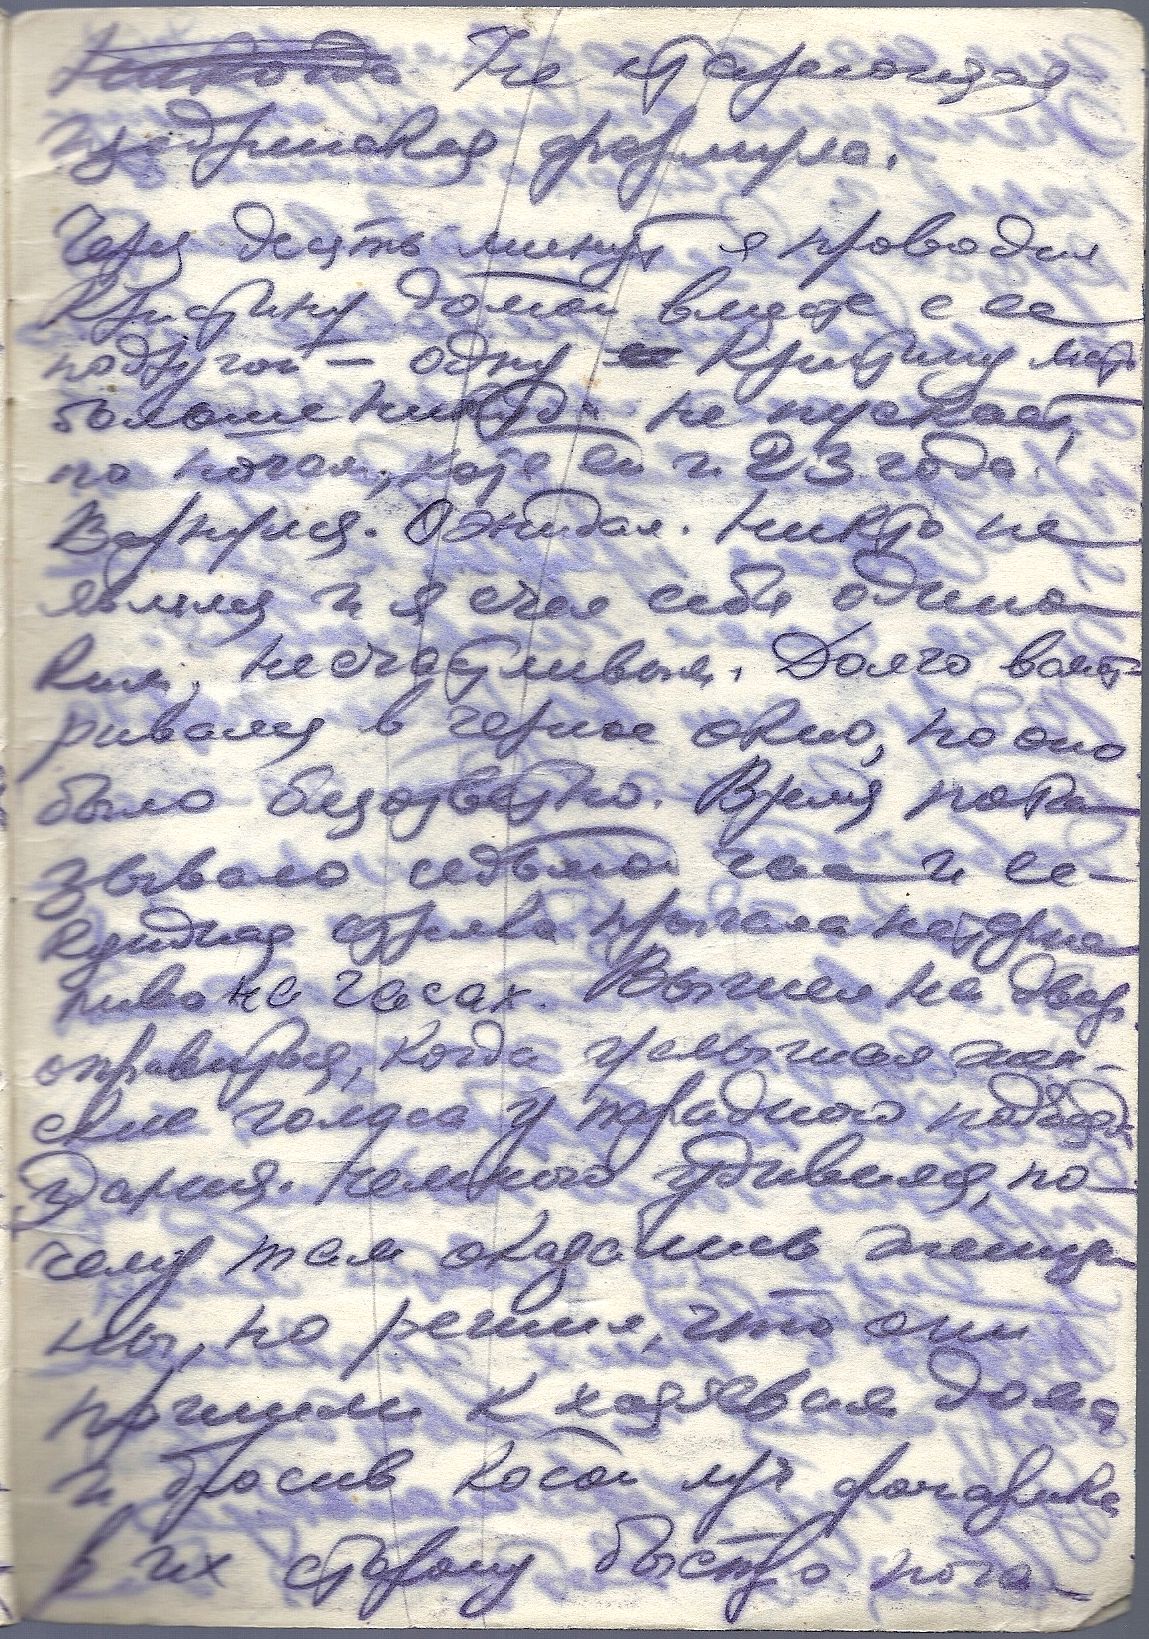 Не стареющая
щедринская формула.
Через десять минут я проводил
Кристину домой вместе с ее
подругой – одну Кристину мать
больше никогда не пускает
по ночам, хотя ей и 23 года!
Вернулся. Ожидал. Никто не
являлся и я счел себя одино-
ким, несчастливым. Долго всмат-
ривался в черное окно, но оно
было безответно. Время пока-
зывало седьмой час и се-
кундная стрелка прыгала
на часах. Вышел на двор
оправиться, когда услышал жен-
ские голоса у парадного подъезда
здания. Немного удивился, по-
чему там оказались женщи-
ны, но решил, что они
пришли к хозяевам дома
и, бросив косой луч фонарика
в их сторону быстро поча-